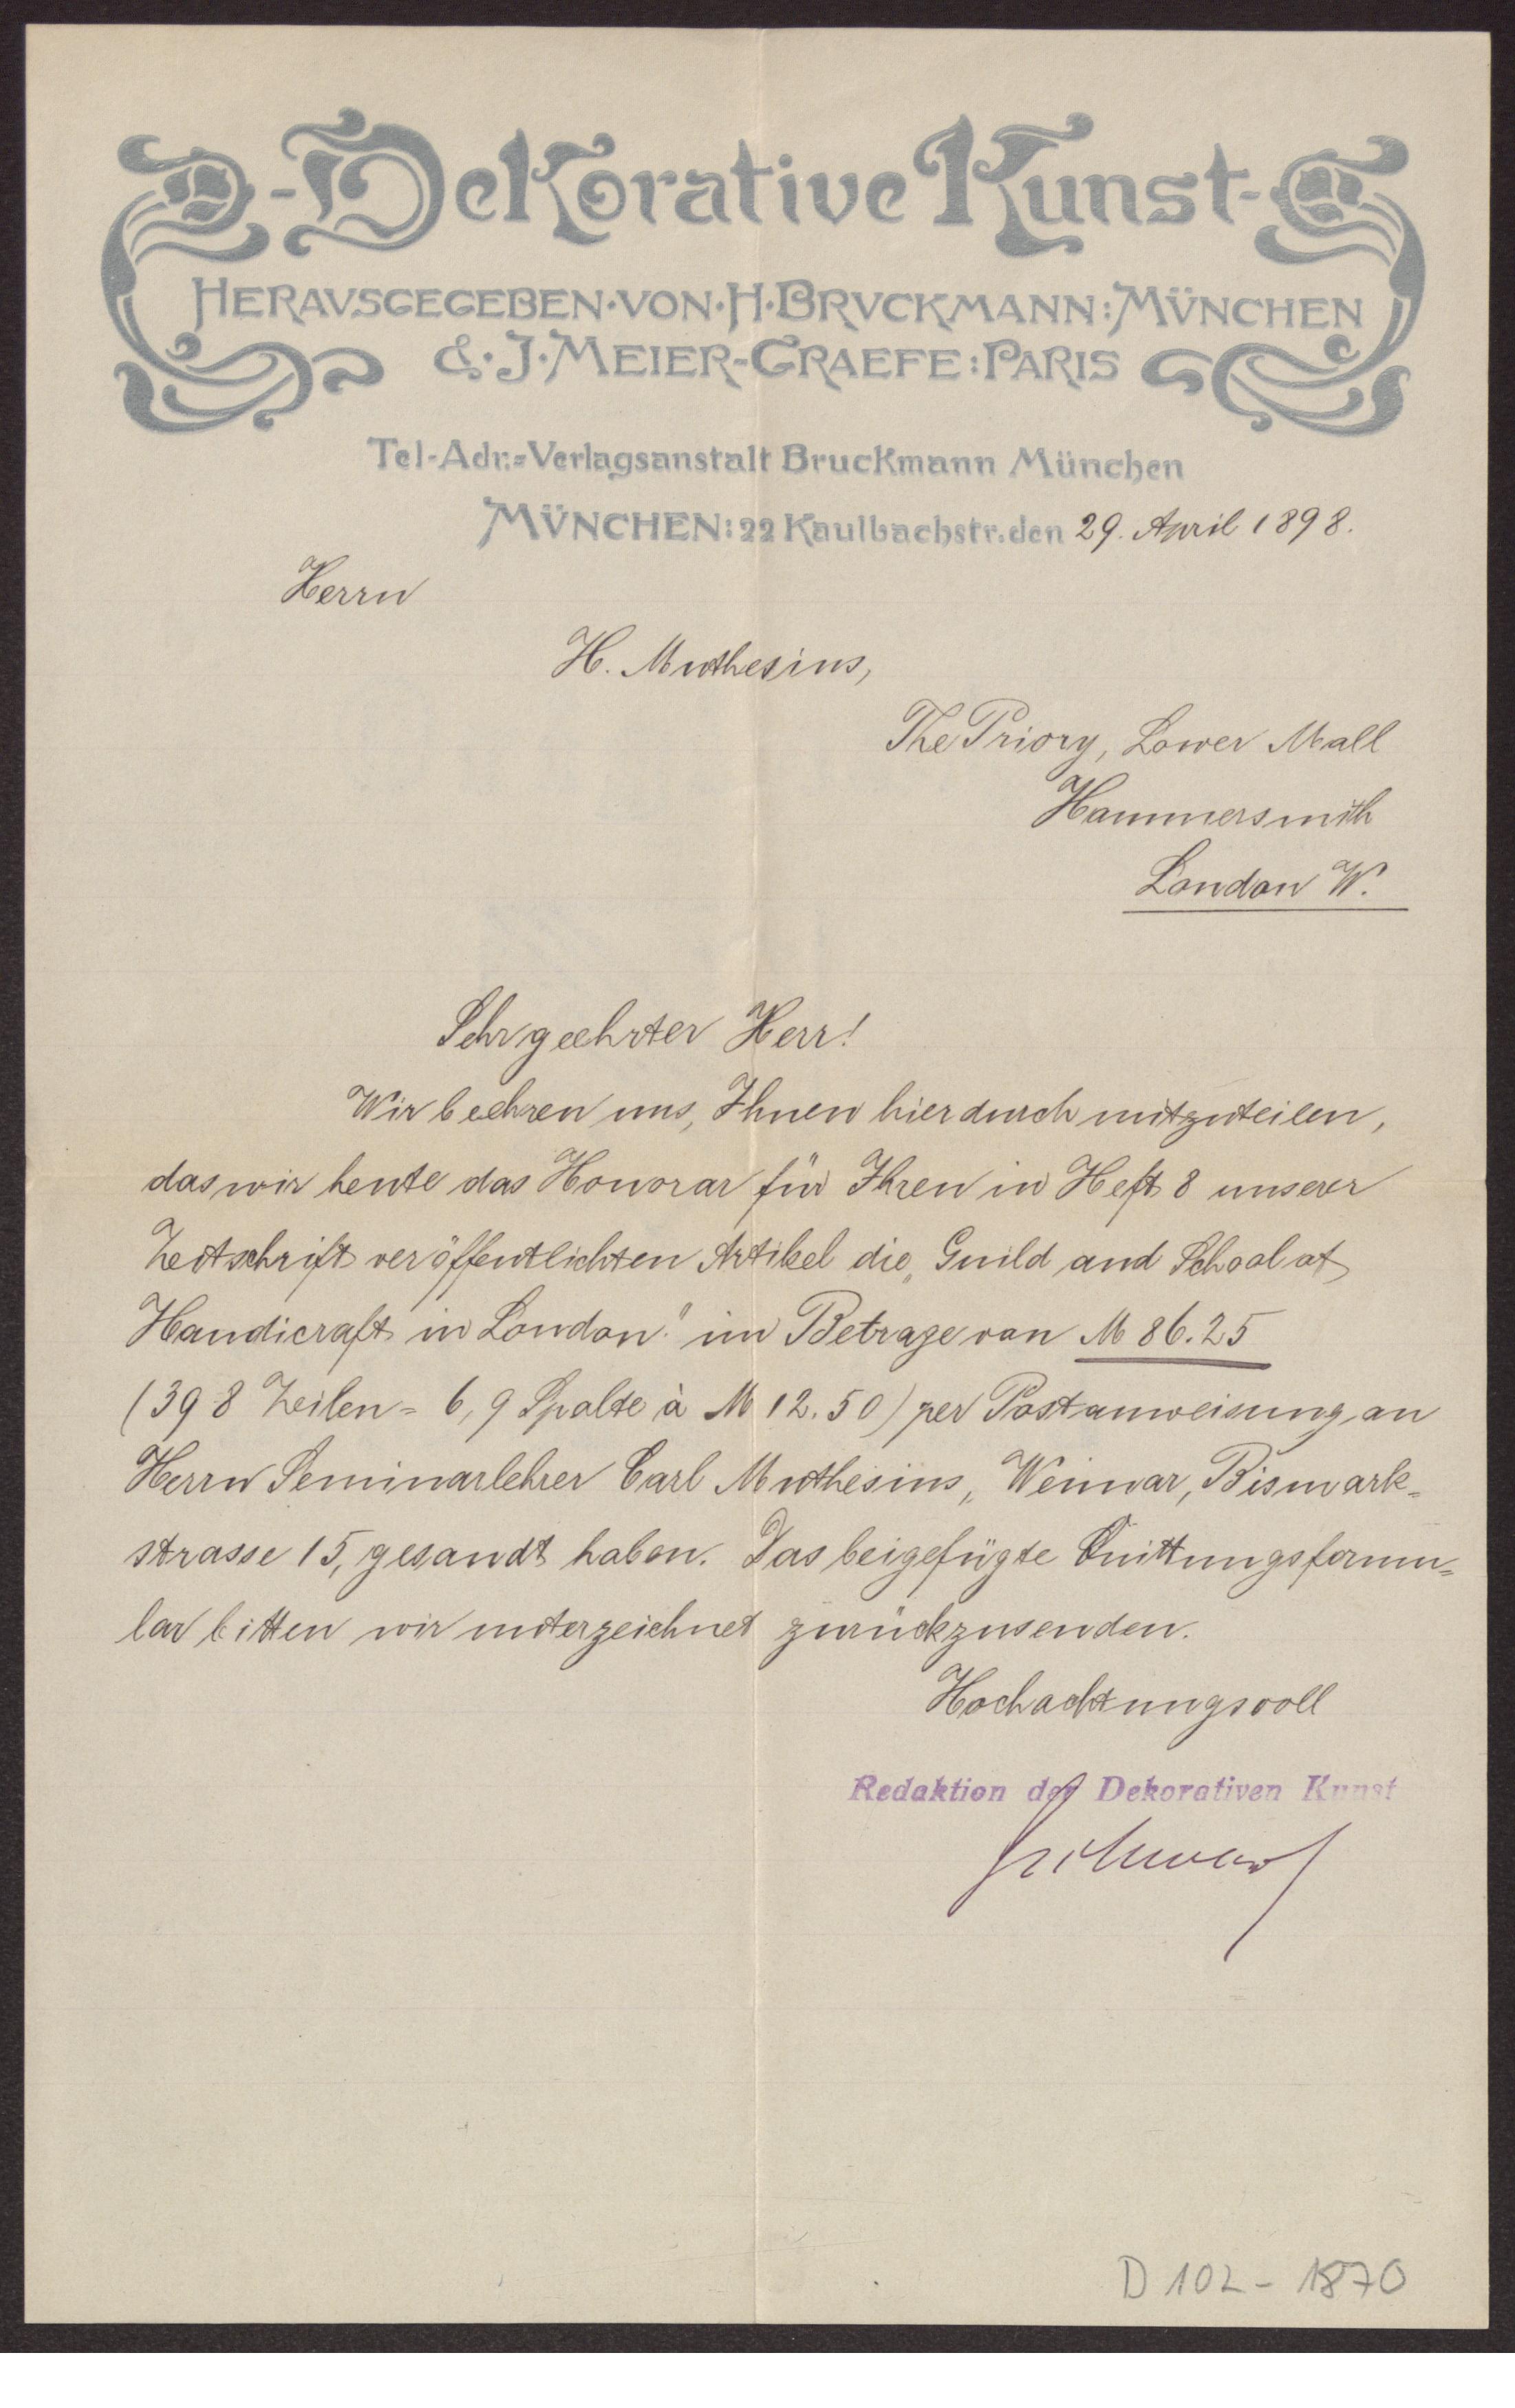 Dekorative Kunst
HERAVSGEGEBEN·VON·H·BRVCKMANN:MÜNCHEN
&·J·MEIER-GRAEFE:PARIS
Tel-Adr.=Verlagsanstalt Bruckmann München
MÜNCHEN: 22 Kaulbachstr. den 29. April 1898.
Herrn
H. Muthesius,
The Priory, Lower Mall
Hammersmith
London W.
Sehr geehrter Herr!
Wir beehren uns, Ihnen hierdurch mitzuteilen,
das wir heute das Honorar für Ihren in Heft 8 unserer
Zeitschrift veröffentlichten Artikel die „Guild and School of
Handicraft in London." im Betrage von M 86.25
(398 Zeilen = 6,9 Spalte à M 12.50) per Postanweisung an
Herrn Seminarlehrer Carl Muthesius, Weimar, Bismark=
strasse 15, gesandt haben. Das beigefügte Quittungsformu=
lar bitten wir unterzeichnet zurückzusenden.
Hochachtungsvoll
Redaktion der Dekorativen Kunst
D 102 - 1870